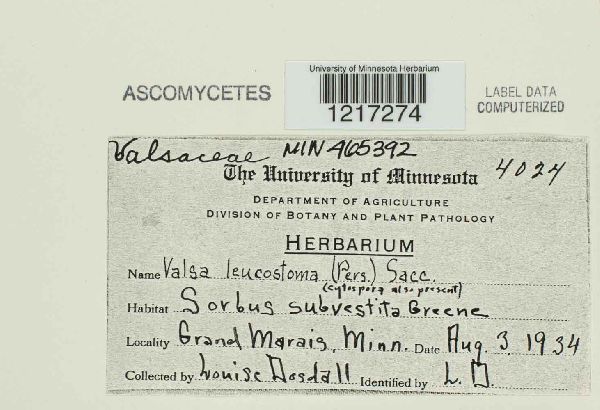 University of Minnesota Herbarium
1217274
ASCOMYCETES
LABEL DATA
COMPUTERIZED
Valsaceae MIN 465392
4024
The University of Minnesota
DEPARTMENT OF AGRICULTURE
DIVISION OF BOTANY AND PLANT PATHOLOGY
HERBARIUM
Name Valsa leucostoma (Pers.) Sacc.
(cytospora also present)
Habitat Sorbus subvestita Greene
Locality Grand Marais, Minn. Date Aug. 3 1934
Collected by Louise Dosdall Identified by L. D.